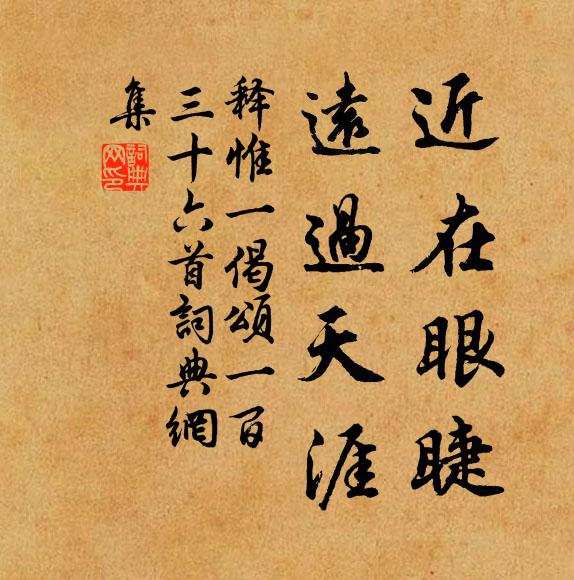 近在眼睫
遠過天涯
释惟一偈頌一百
三十六首詞典網
集
詞典網印